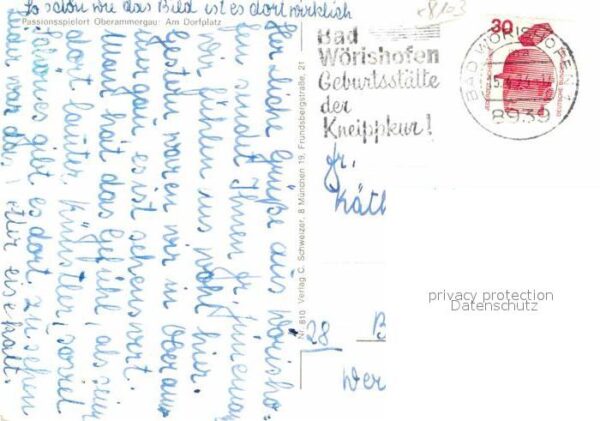 So schön wie das Bild ist es dort wirklich
Passionsspielort Oberammergau: Am Dorfplatz
Herzliche Grüße aus Wörisho
fen sendet Ihnen fr.
Wir fühlen uns wohl hier.
Gestern waren wir in Oberam
mergau, es ist sehenswert.
Man hat das Gefühl, als seien
dort lauter Künstler, soviel
Schönes gibt es dort zu sehen
nur war da, Alles eiskalt.
Nr. 610 Verlag C. Schweizer, 8 München 19, Frundsbergstraße 21
8103
Bad
Wörishofen
Geburtsstätte
der
Kneippkur!
30
BAD WÖRISHOFEN 1
8939
fr.
Käth
28
B
Wer
privacy protection
Datenschutz